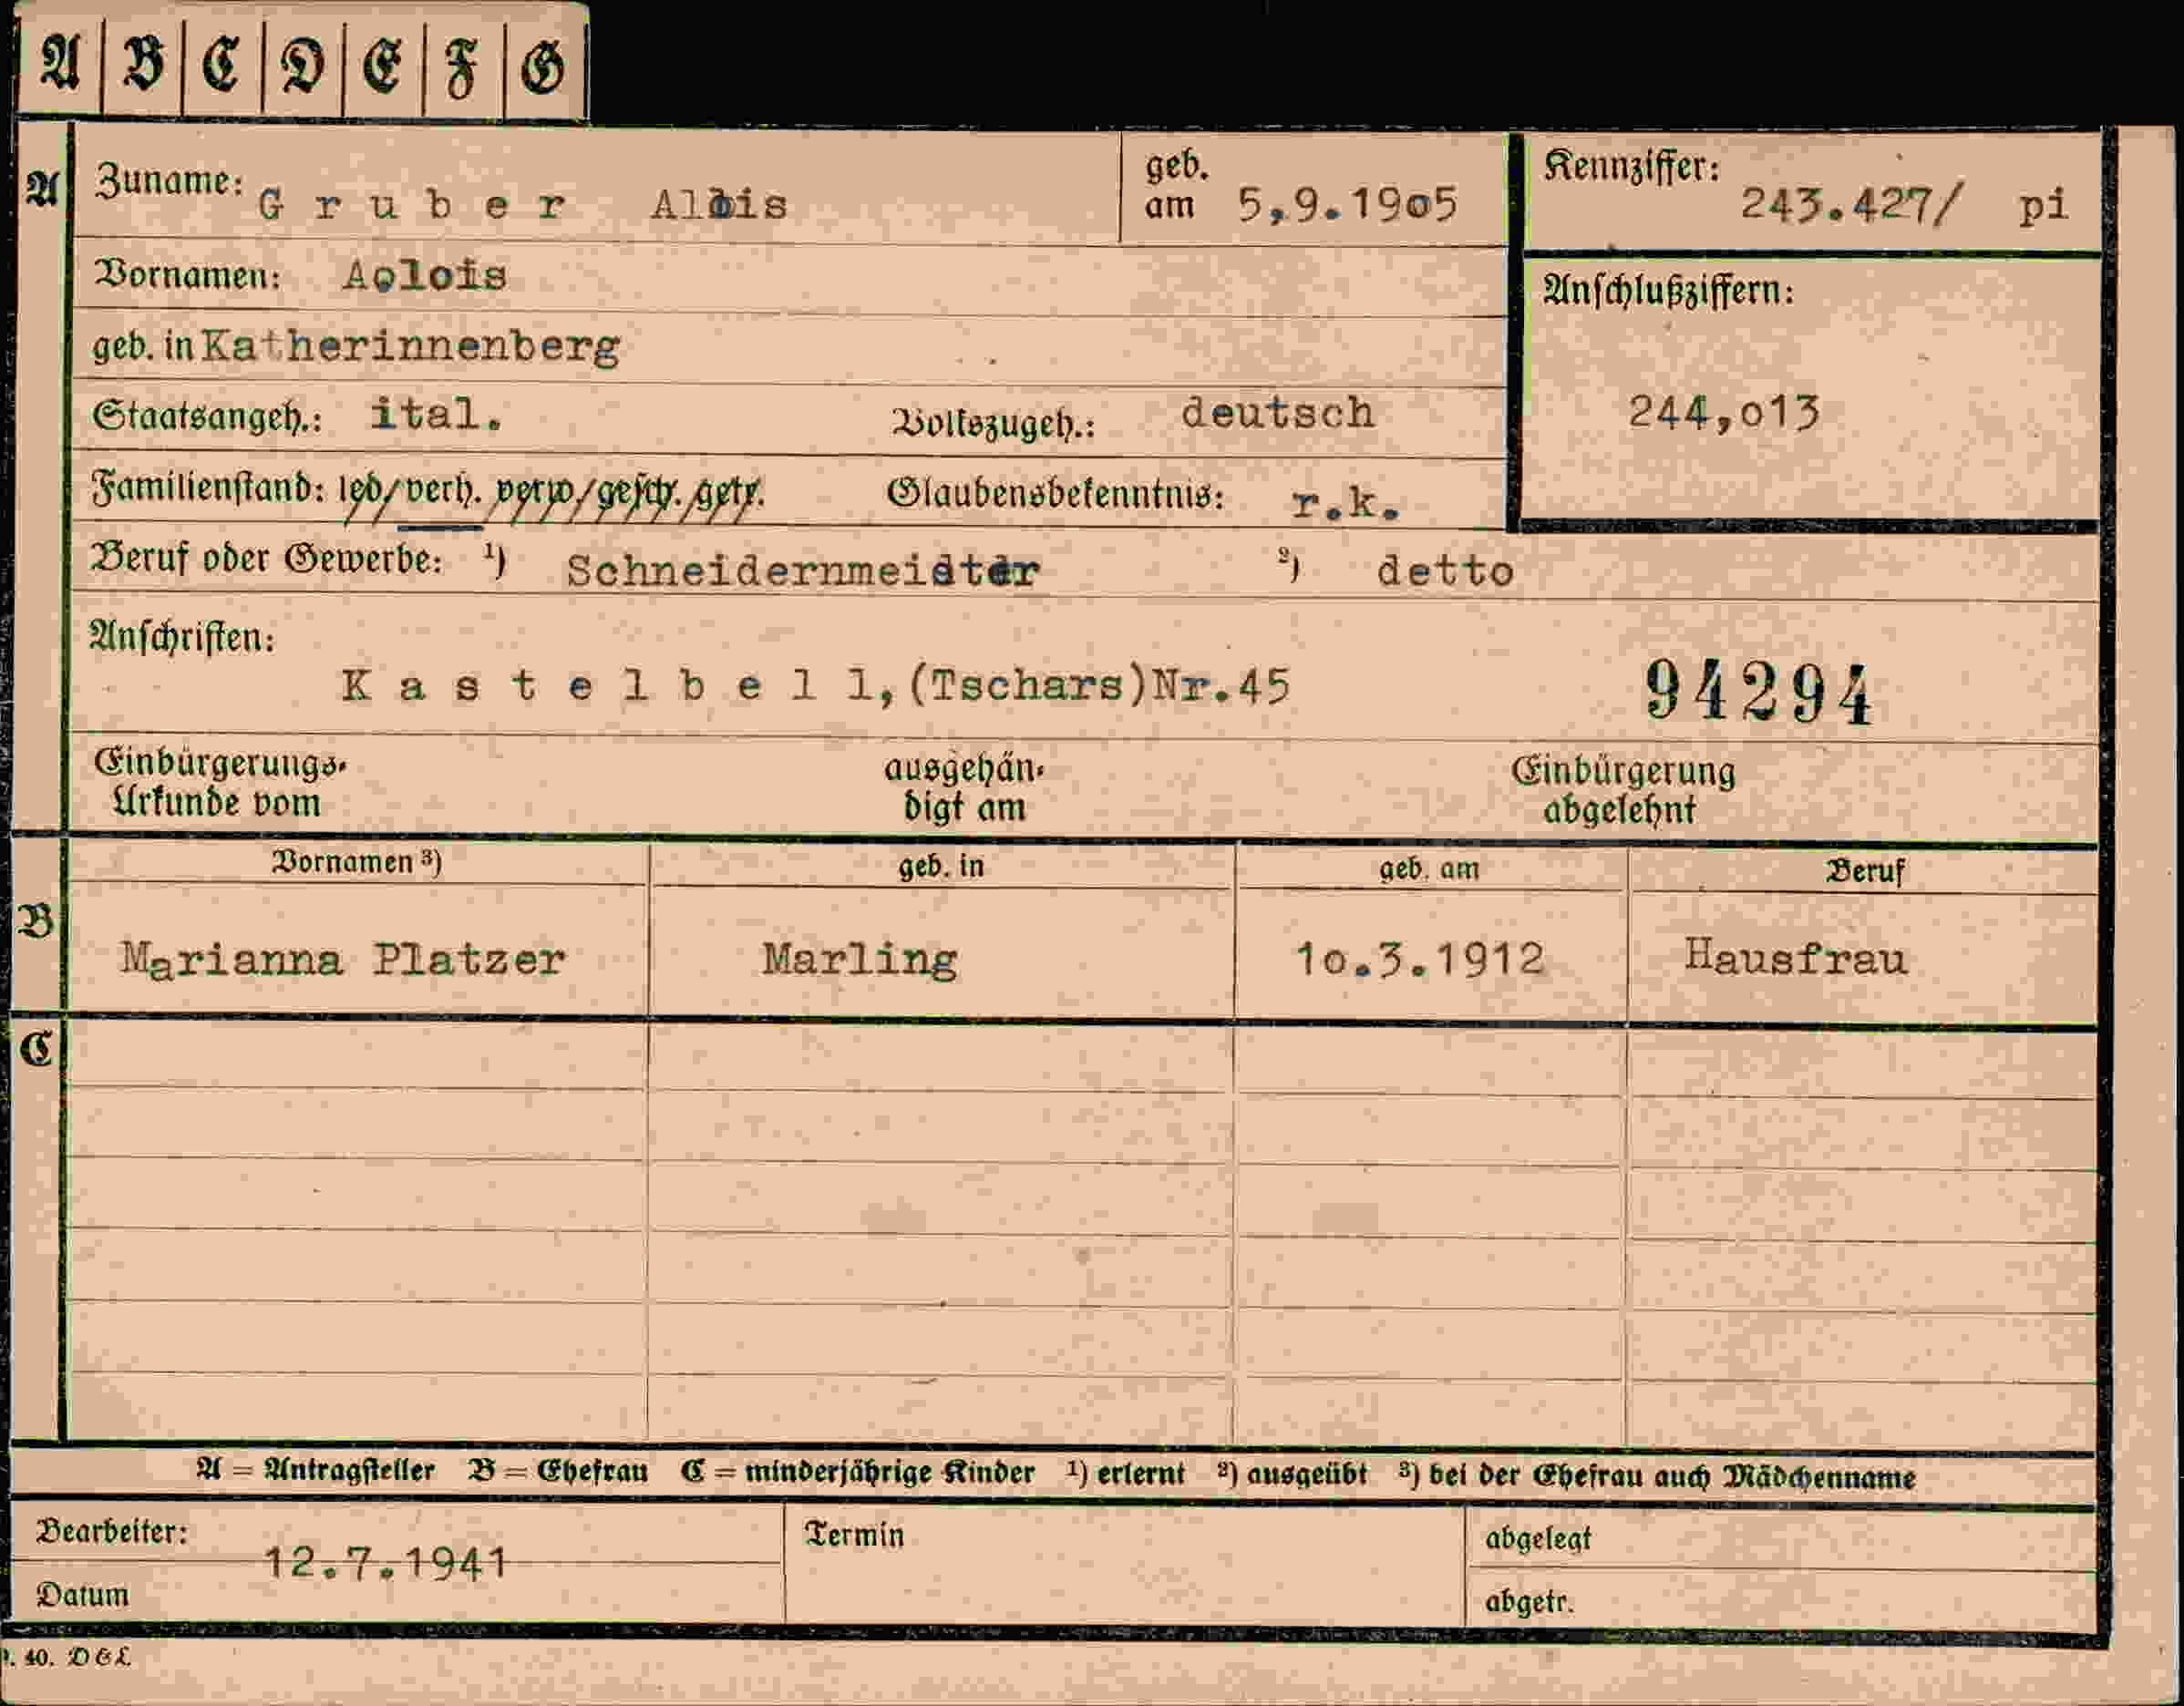 A B C D E F G
A Zuname: Gruber Alois geb. am 5,9.19o5 Kennziffer: 243.427/ pi
Vornamen: Aolois Anschlußziffern:
geb. in Katherinnenberg
Staatsangeh.: ital. Volkszugeh.: deutsch 244,o13
Familienstand: led/verh. verw/gesch./getr. Glaubensbekenntnis: r.k.
Beruf oder Gewerbe: ¹) Schneidernmeister ²) detto
Anschriften:
Kastelbell,(Tschars)Nr.45 94294
Einbürgerungs- ausgehän- Einbürgerung
Urkunde vom digt am abgelehnt
Vornamen ³) geb. in geb. am Beruf
B Marianna Platzer Marling 1o.3.1912 Hausfrau
C
A = Antragsteller B = Ehefrau C = minderjährige Kinder ¹) erlernt ²) ausgeübt ³) bei der Ehefrau auch Mädchenname
Bearbeiter: Termin abgelegt
12.7.1941
Datum abgetr.
40. DEL